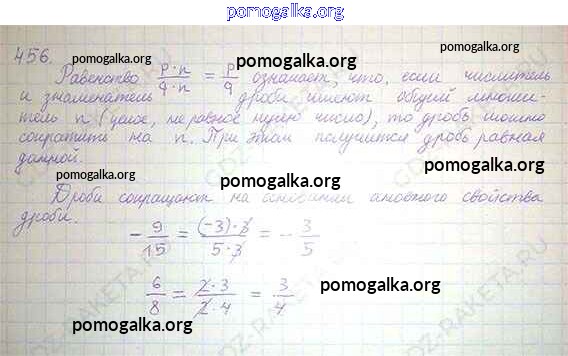 pomogalka.org
456.
pomogalka.org
pomogalka.org
Равенство p·n/q·n = p/q означает что, если числитель
и знаменатель дроби имеют общий множи-
pomogalka.org
pomogalka.org
тель n (целое, не равное нулю число), то дробь можно
сократить на n. При этом получится дробь равная
данной.
pomogalka.org
pomogalka.org
Дроби сокращают на основании основного свойства
pomogalka.org
pomogalka.org
дроби.
-9/15 = (-3)·3/5·3 = -3/5
6/8 = 2·3/2·4 = 3/4
pomogalka.org
pomogalka.org
GDZ-RAKETA.RU